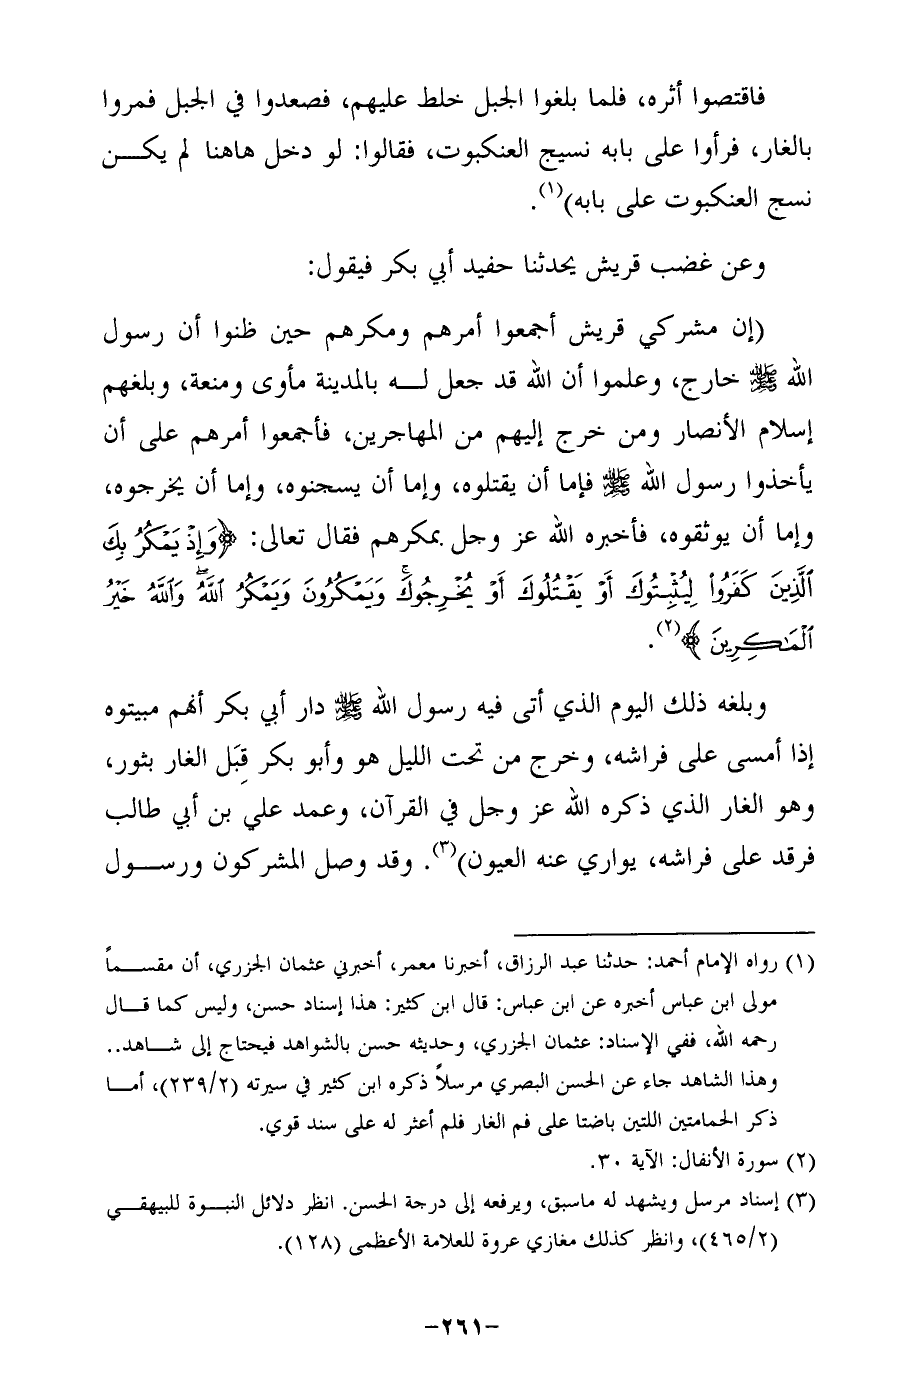 فاقتصوا أثره، فلما بلغوا الجبل خلط عليهم، فصعدوا في الجبل فمروا
بالغار، فرأوا على بابه نسيج العنكبوت، فقالوا: لو دخل هاهنا لم يكن
نسج العنكبوت على بابه)(١).
وعن غضب قريش يحدثنا حفيد أبي بكر فيقول:
(إن مشركي قريش أجمعوا أمرهم ومكرهم حين ظنوا أن رسول
الله ﷺ خارج، وعلموا أن الله قد جعل له بالمدينة مأوى ومنعة، وبلغهم
إسلام الأنصار ومن خرج إليهم من المهاجرين، فأجمعوا أمرهم على أن
يأخذوا رسول الله ﷺ فإما أن يقتلوه، وإما أن يسجنوه، وإما أن يخرجوه،
وإما أن يوثقوه، فأخبره الله عز وجل بمكرهم فقال تعالى: ﴿وَإِذْ يَمْكُرُ بِكَ
ٱلَّذِينَ كَفَرُواْ لِيُثْبِتُوكَ أَوْ يَقْتُلُوكَ أَوْ يُخْرِجُوكَۚ وَيَمْكُرُونَ وَيَمْكُرُ ٱللَّهُۖ وَٱللَّهُ خَيْرُ
ٱلْمَٰكِرِينَ﴾(٢).
وبلغه ذلك اليوم الذي أتى فيه رسول الله ﷺ دار أبي بكر أنهم مبيتوه
إذا أمسى على فراشه، وخرج من تحت الليل هو وأبو بكر قِبَل الغار بثور،
وهو الغار الذي ذكره الله عز وجل في القرآن، وعمد علي بن أبي طالب
فرقد على فراشه، يواري عنه العيون)(٣). وقد وصل المشركون ورسول
(١) رواه الإمام أحمد: حدثنا عبد الرزاق، أخبرنا معمر، أخبرني عثمان الجزري، أن مقسماً
مولى ابن عباس أخبره عن ابن عباس: قال ابن كثير: هذا إسناد حسن، وليس كما قال
رحمه الله، ففي الإسناد: عثمان الجزري، وحديثه حسن بالشواهد فيحتاج إلى شاهد..
وهذا الشاهد جاء عن الحسن البصري مرسلاً ذكره ابن كثير في سيرته (٢٣٩/٢)، أما
ذكر الحمامتين اللتين باضتا على فم الغار فلم أعثر له على سند قوي.
(٢) سورة الأنفال: الآية ٣٠.
(٣) إسناد مرسل ويشهد له ماسبق، ويرفعه إلى درجة الحسن. انظر دلائل النبوة للبيهقي
(٤٦٥/٢)، وانظر كذلك مغازي عروة للعلامة الأعظمي (١٢٨).
-٢٦١-